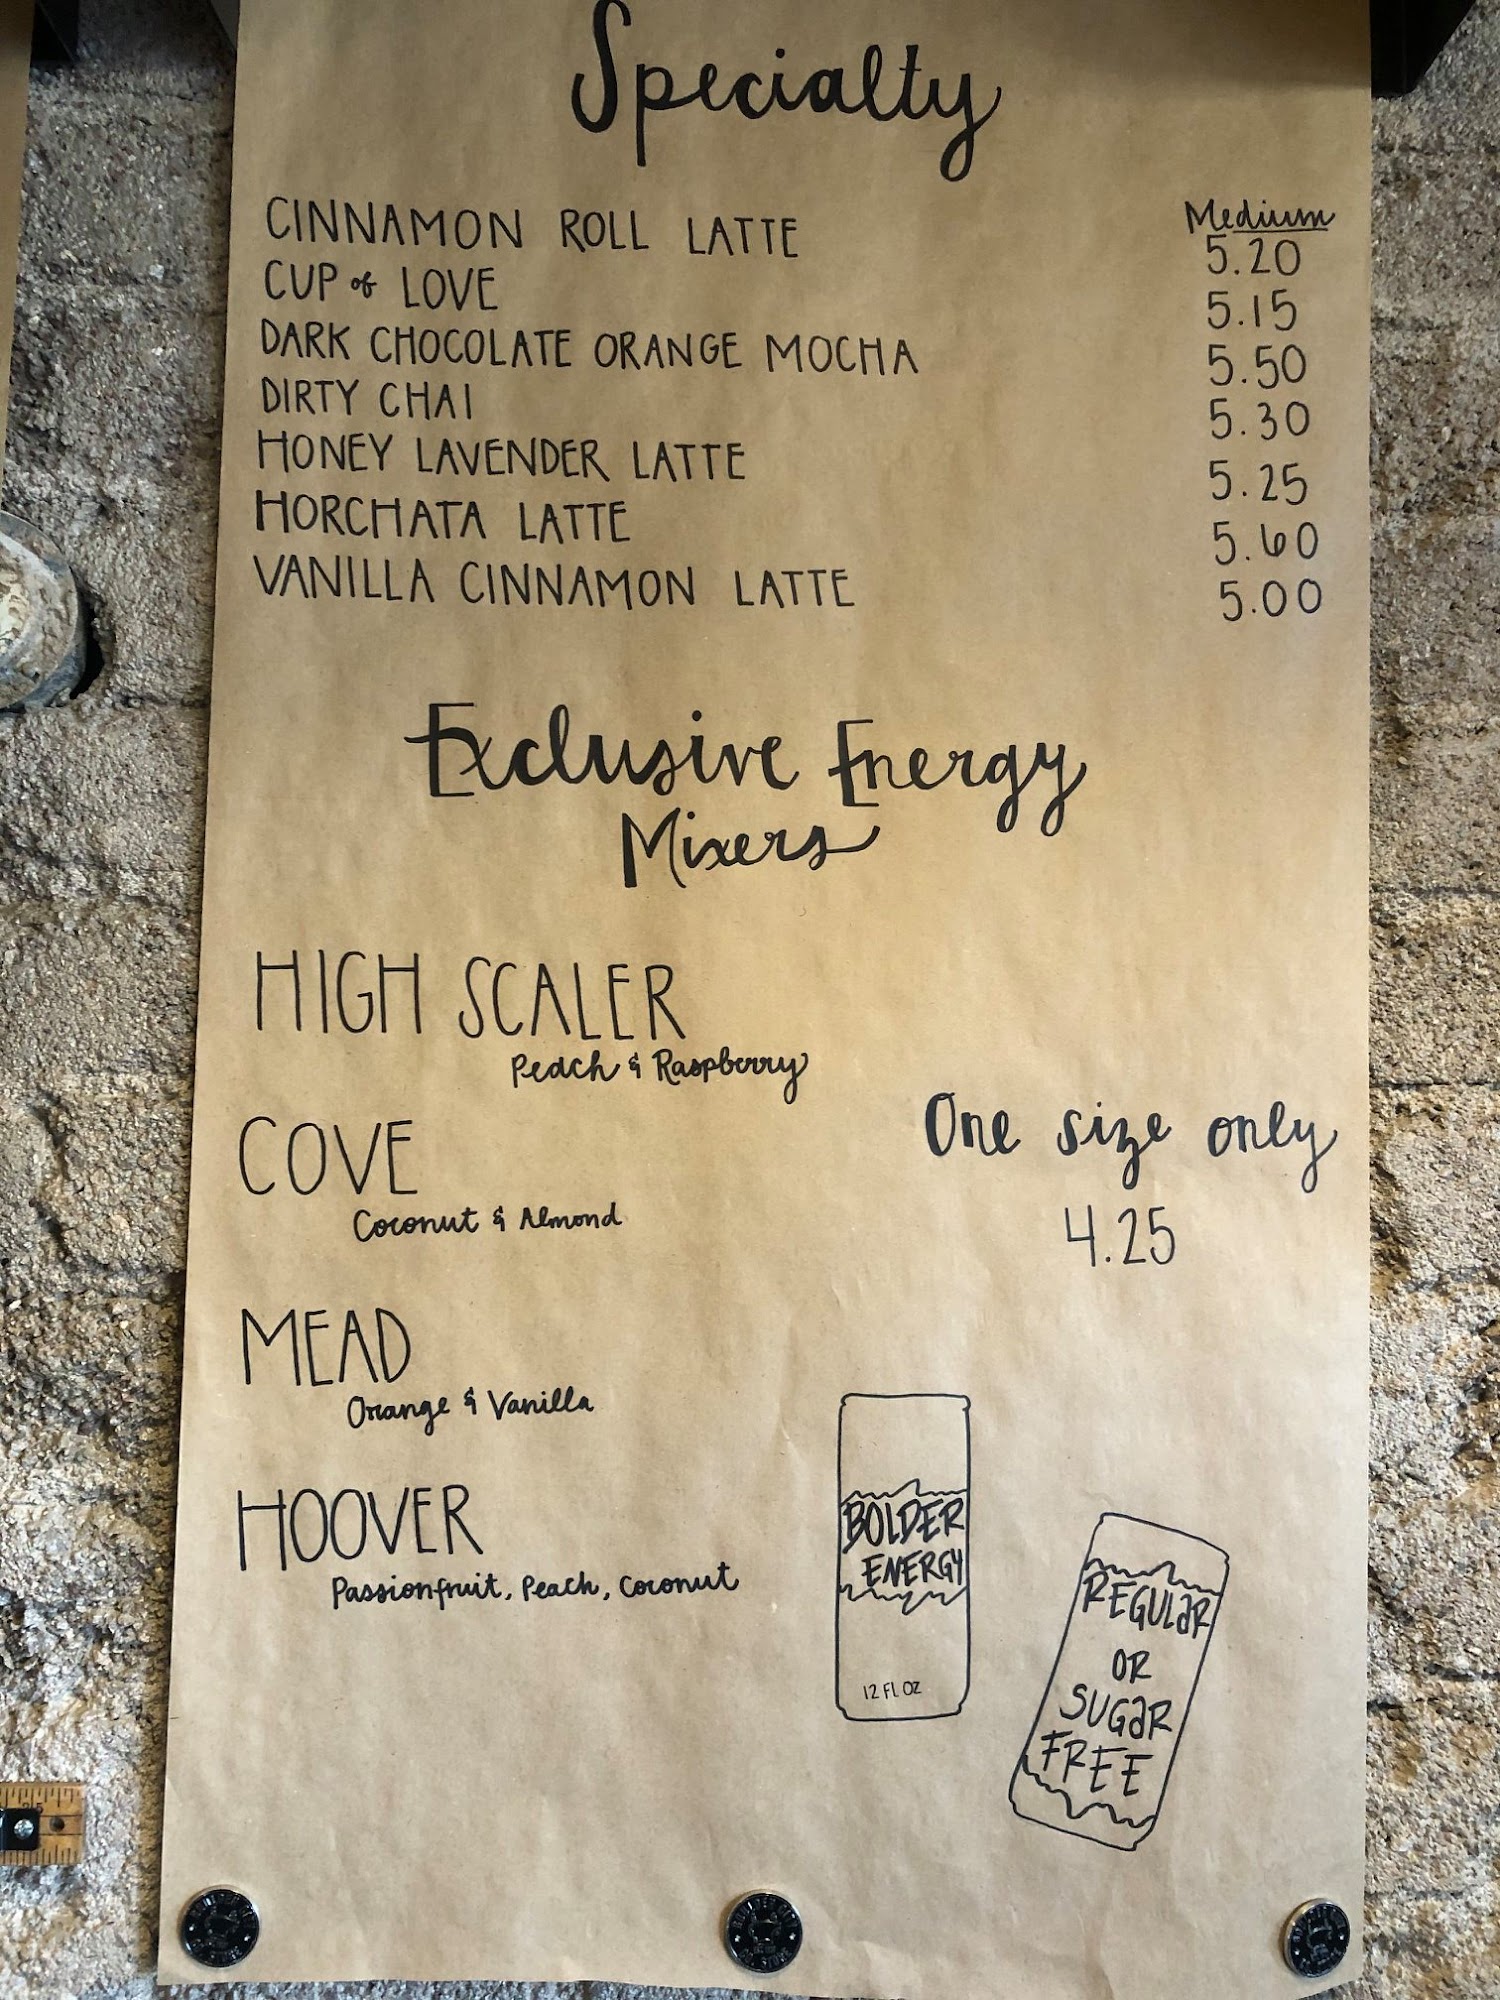 Specialty
Medium
CINNAMON ROLL LATTE 5.20
CUP of LOVE 5.15
DARK CHOCOLATE ORANGE MOCHA 5.50
DIRTY CHAI 5.30
HONEY LAVENDER LATTE 5.25
HORCHATA LATTE 5.60
VANILLA CINNAMON LATTE 5.00
Exclusive Energy
Mixers
HIGH SCALER
Peach & Raspberry
COVE
Coconut & Almond
One size only
4.25
MEAD
Orange & Vanilla
HOOVER
Passionfruit, Peach, Coconut
BOLDER
ENERGY
12 Fl OZ
REGULaR
OR
SUGaR
FREE